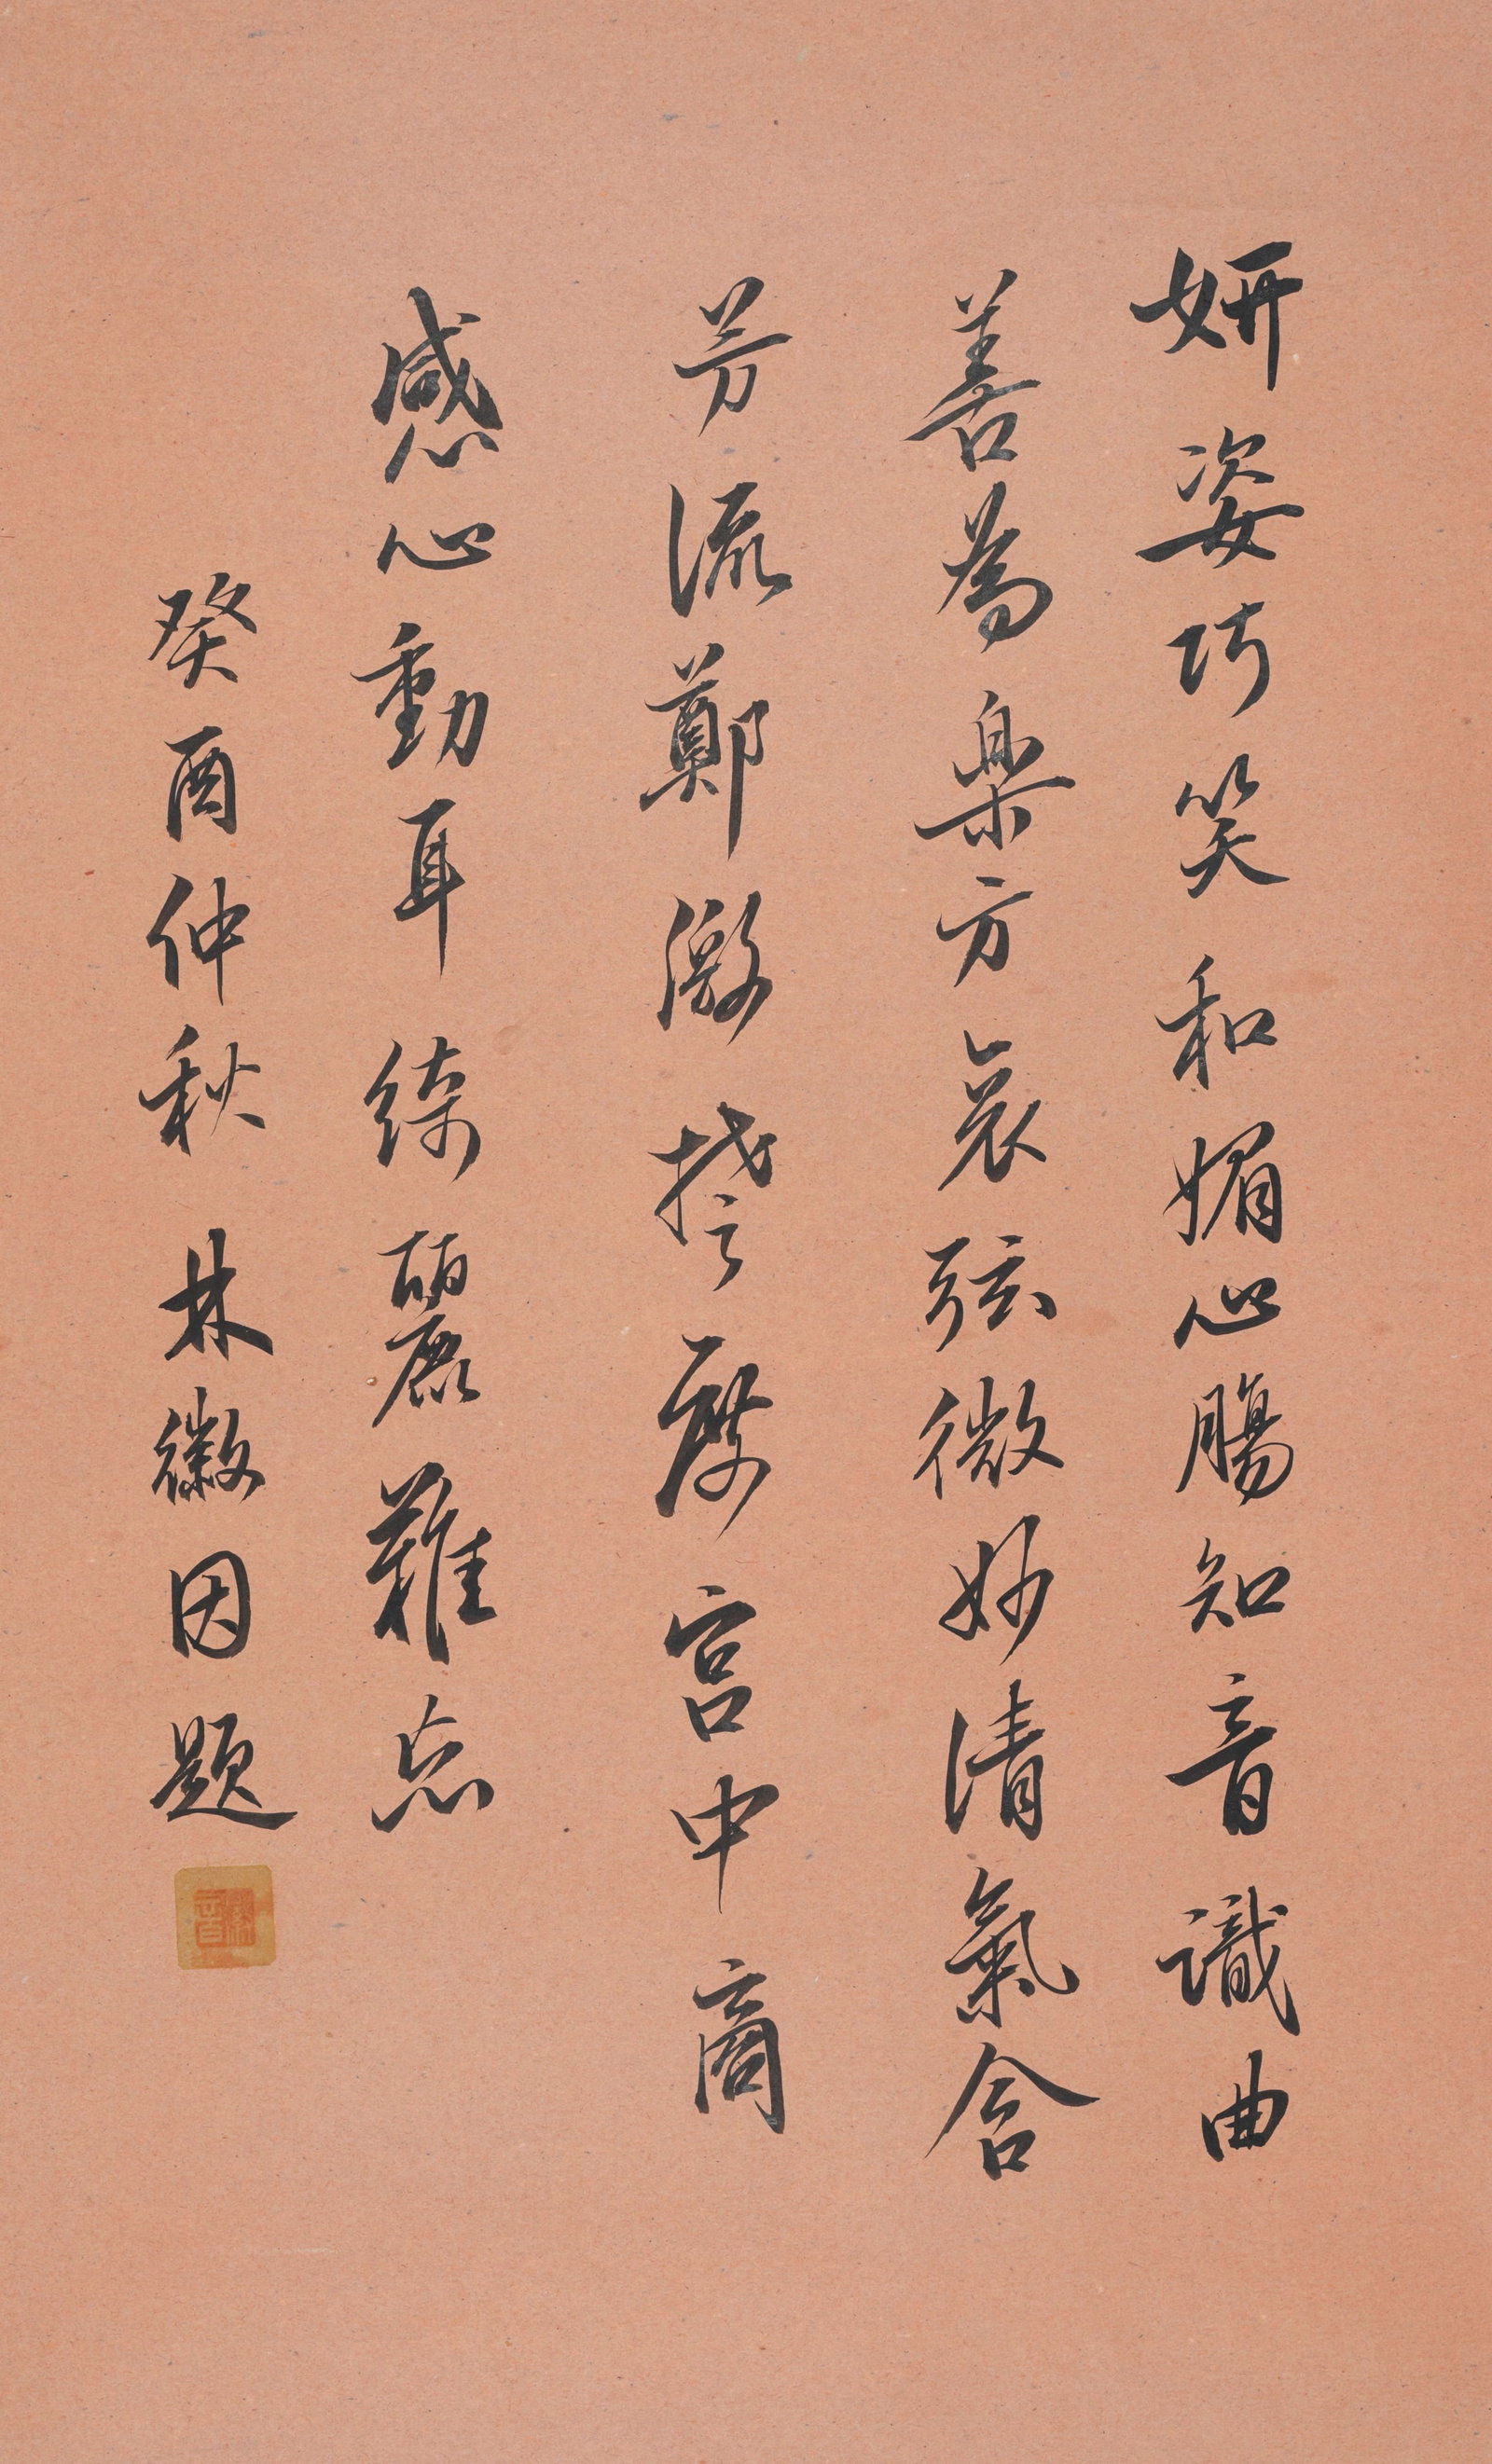 妍姿巧笑和媚心腸知音識曲
善為樂方哀弦微妙清氣含
芳流鄭激楚度宮中商
感心動耳綺麗難忘
癸酉仲秋林徽因題